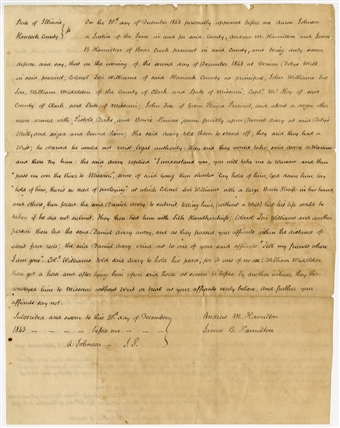 State of Illinois, } On the 20th day of December 1843 personally appeared before me Aaron Johnson
Hancock County } ss a Justice of the Peace in and for said County, Andrew M. Hamilton and James
B Hamilton of Bear Creek precinct in said County, and being duly sworn
depose and say, that on the evening of the second day of December 1843 at Vernon Doty's Mill
in said precinct, Colonel Levi Williams of said Hancock County as principal, John Williams his
Son, William Middleton of the County of Clark and State of Missouri, Capt. Mc Koy of said
County of Clark and State of Missouri; John Fox of Green Plains Precinct, and about a dozen other
men armed with Pistols, Dirks, and Bowie knives came privily upon Daniel Avery at said Doty's
Mill, and seized and bound him; the said Avery told them to stand off; they said they had a
Writ; he thereon he would not resist legal authority; they said they would take said Avery to Warsaw
and there try him: the said Avery replied "I understand you, you will take me to Warsaw and then
pass me over the River to Missouri"; some of said gang then shouted "lay hold of him, God damn him, lay
hold of him, there's no need of parleying": at which Colonel Levi Williams with a large Bowie Knife in his hand,
and others, then forced the said Daniel Avery to submit telling him, (without a Writ) that his life would be
taken if he did not submit. They then tied him with Silk Handkerchiefs, Colonel Levi Williams and another
person then led the said Daniel Avery away, and as they passed your affiants (within the distance of
about four rods), the said Daniel Avery cried out to one of your said affiants "Tell my friends where
I am gone". Col. Williams told said Avery to hold his peace, for it was of no use: William Middleton
then got a horse and after tying him upon said horse as sworn to before by another witness, they then
conveyed him to Missouri without Writ or trial as your affiants verily believe, And further your
affiants say not.
Subscribed and sworn to this 20th day of December } Andrew M. Hamilton
1843 before me } James B. Hamilton
A Johnson J.P.